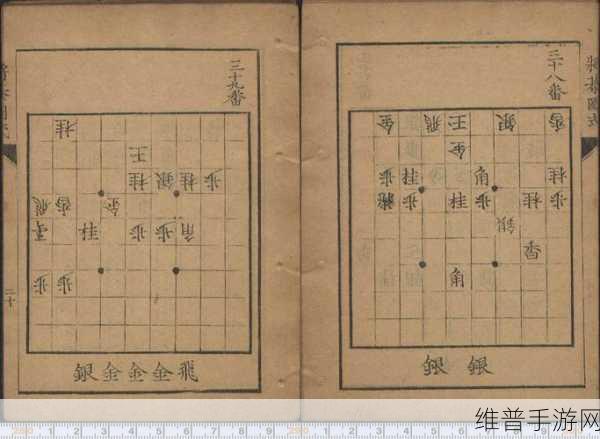 三十八番
香 銀 王 飛 金
金
桂 角 桂 歩
歩 桂 歩 桂 歩
銀
香
角
銀 銀
三十九番
桂
王
歩 桂 銀 桂
金 香 飛
角 歩 歩 桂
歩 歩
飛金金金銀
二十
维普手游网